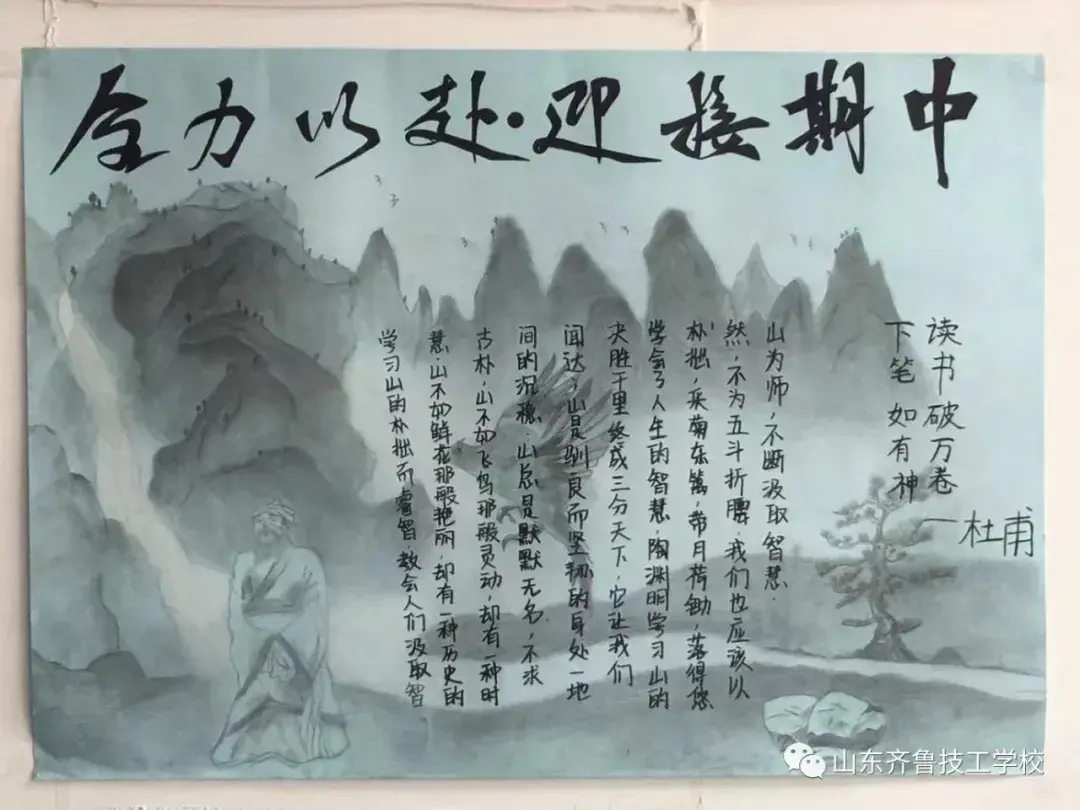 全力以赴·迎接期中
学习山的朴拙而睿智,教会人们汲取智
慧.山不如鲜花那般艳丽,却有一种历史的
古朴,山不如飞鸟那般灵动,却有一种时
间的沉稳.山总是默默无名,不求
闻达,山是驯良而坚韧的身处一地
决胜千里终成三分天下,它让我们
学会了人生的智慧陶渊明学习山的
朴拙,采菊东篱,带月荷锄,落得悠
然,不为五斗折腰.我们也应该以
山为师,不断汲取智慧.
读书破万卷
下笔如有神
—杜甫
山东齐鲁技工学校